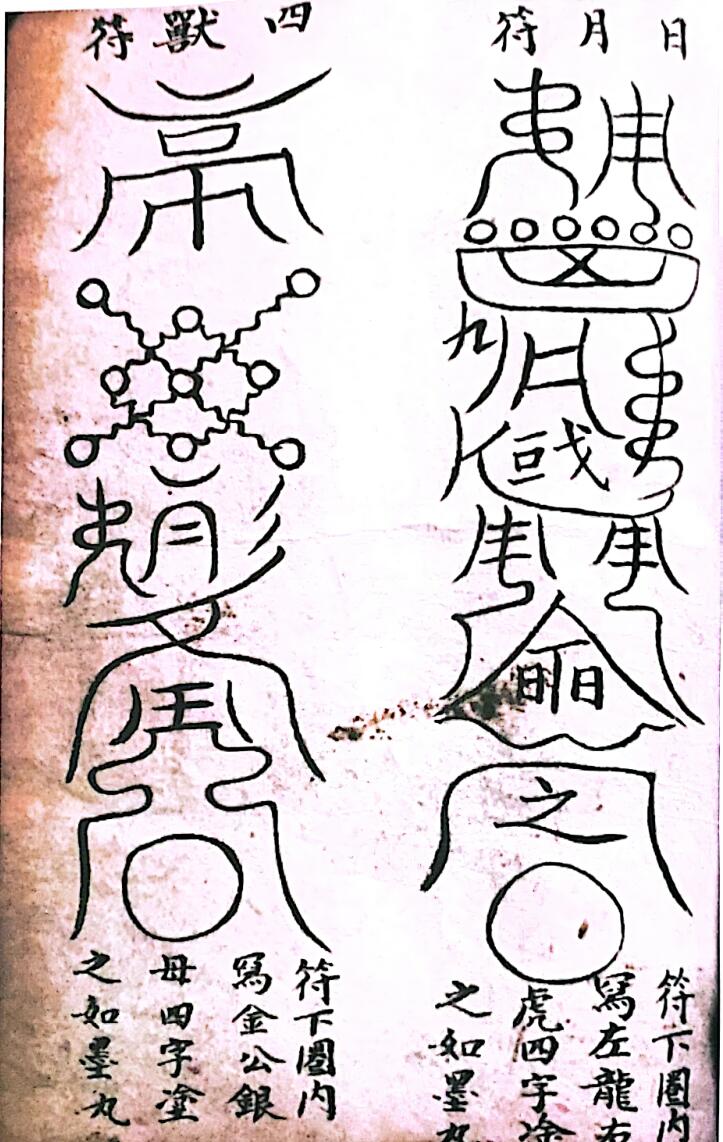 日月符
之
符下圈内
寫左龍右
虎四字塗
之如墨丸
四獸符
符下圈内
寫金公銀
母四字塗
之如墨丸